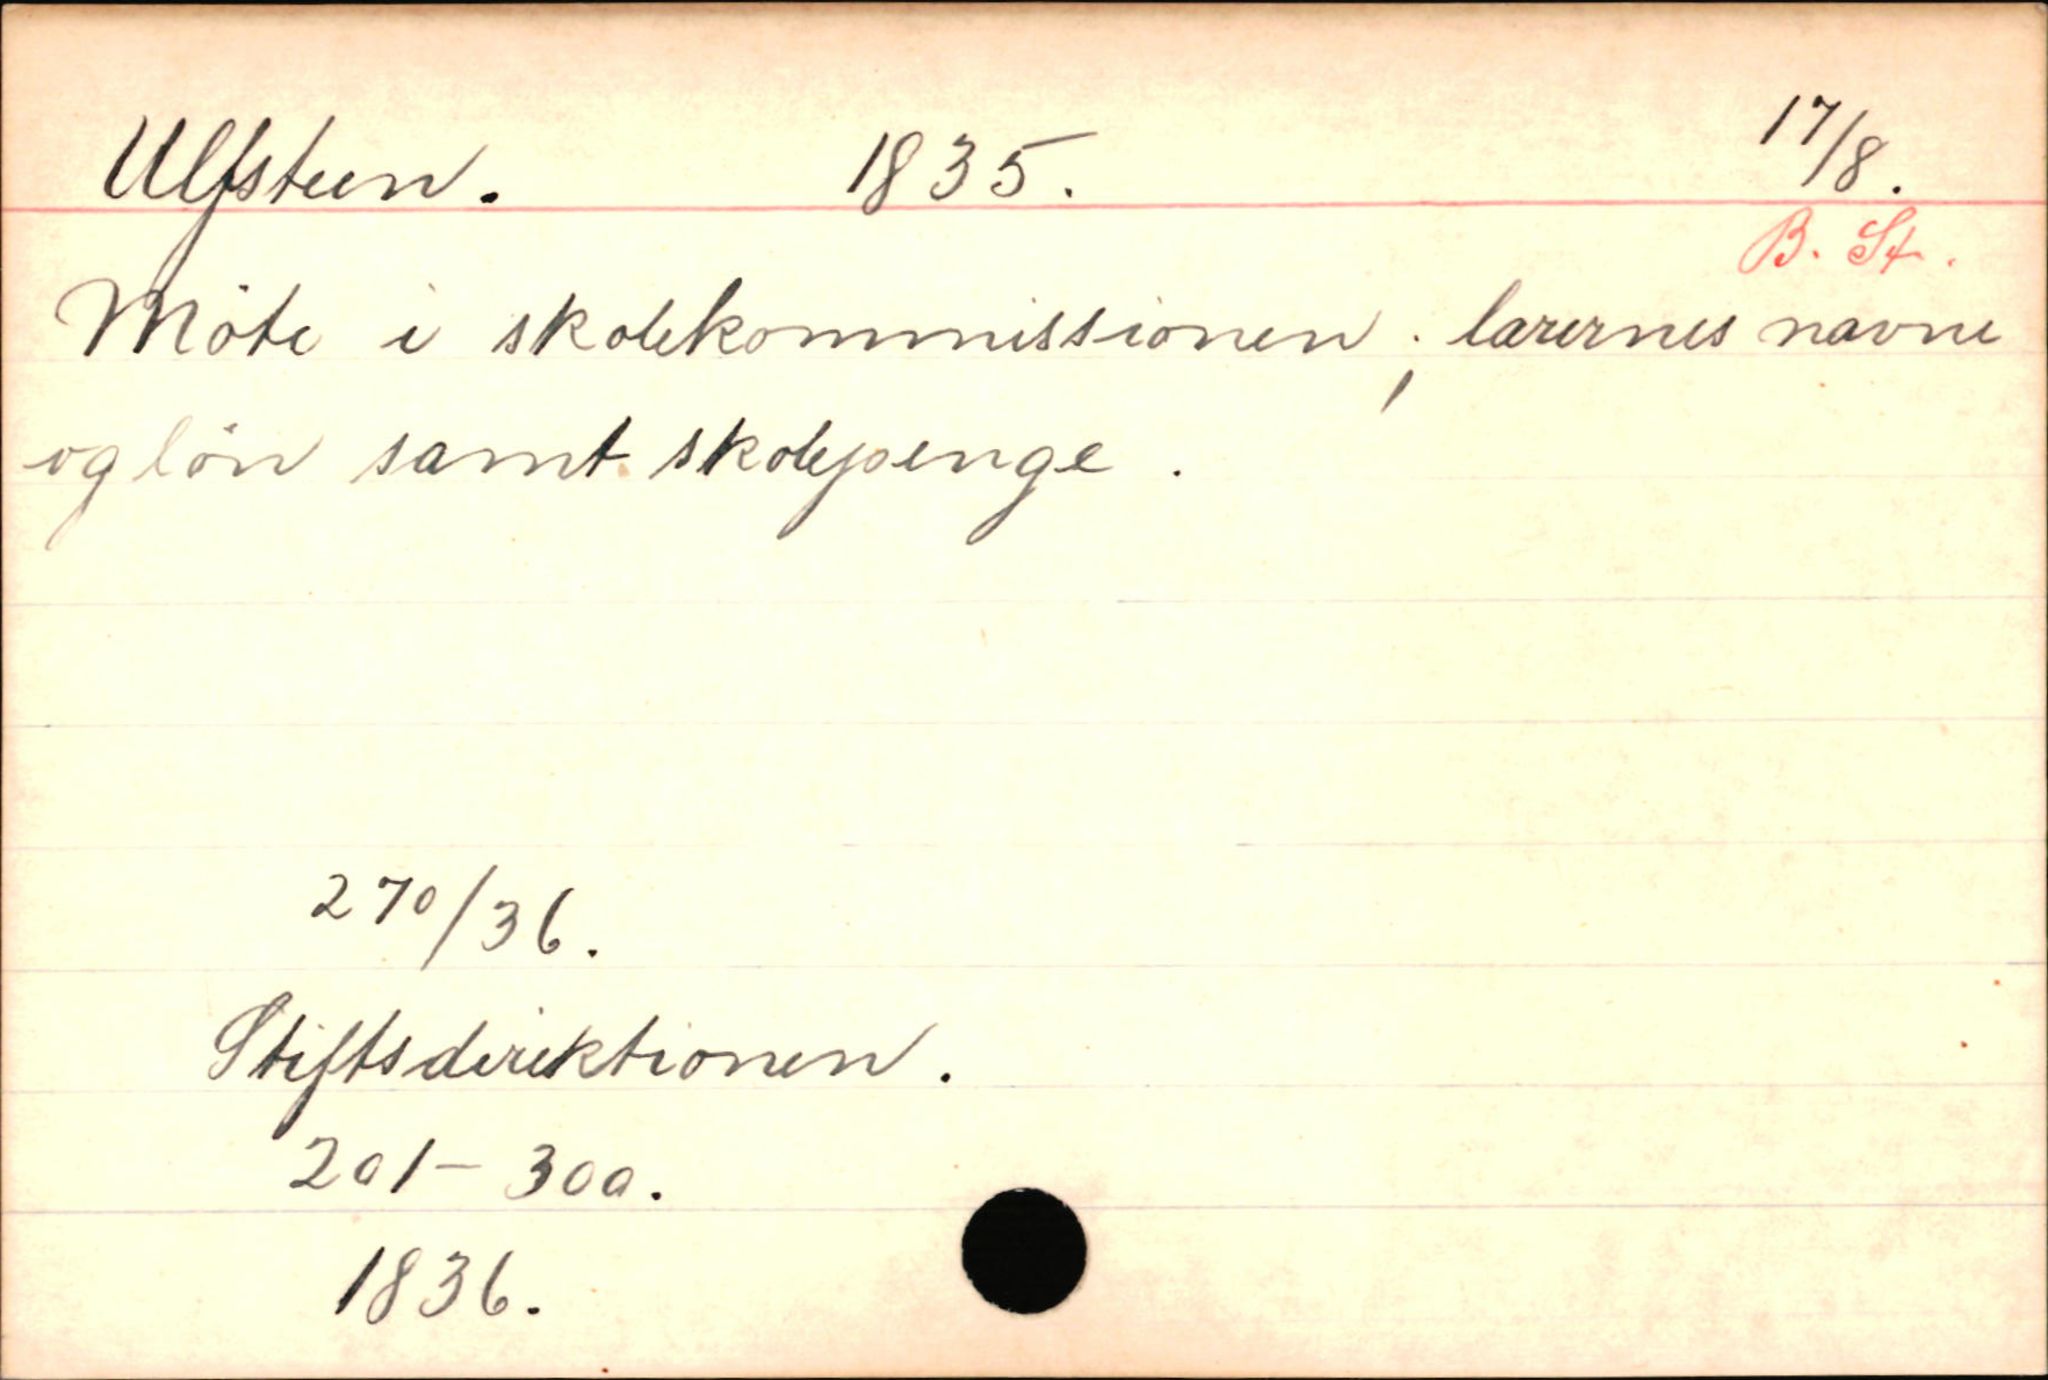 Ulfsteen. 1835. 17/8.
B. St.
Möte i skolekommissionen; lærernes navne
og lön samt skolepenge.
270/36.
Stiftsdirektionen.
201-300.
1836.